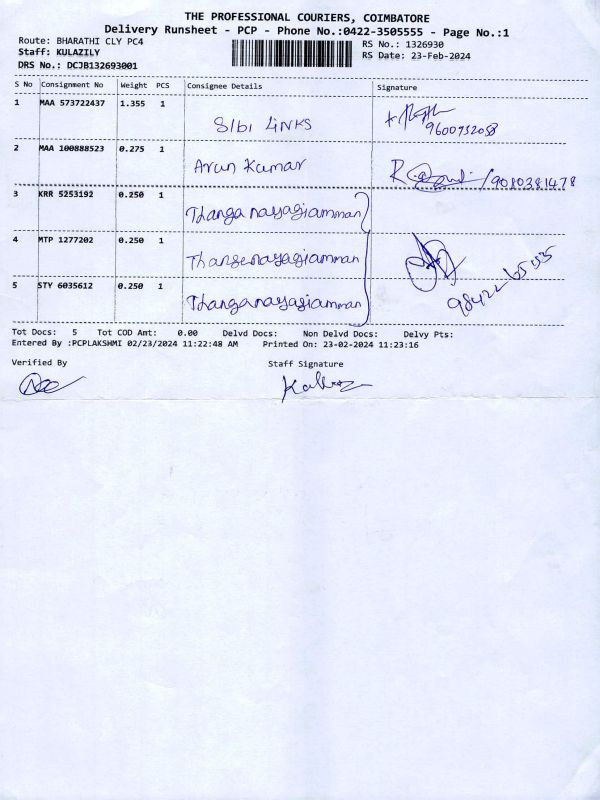 THE PROFESSIONAL COURIERS, COIMBATORE
Delivery Runsheet - PCP - Phone No.:0422-3505555 - Page No.:1
Route: BHARATHI CLY PC4
Staff: KULAZILY
DRS No.: DCJB132693001
RS No.: 1326930
RS Date: 23-Feb-2024
S No Consignment No Weight PCS Consignee Details Signature
1 MAA 573722437 1.355 1 SIBI LINKS
9600932058
2 MAA 100888523 0.275 1 Arun Kumar /9080381478
3 KRR 5253192 0.250 1 Thanganayagiamman
4 MTP 1277202 0.250 1 Thanganayagiamman
5 STY 6035612 0.250 1 Thanganayagiamman
Tot Docs: 5 Tot COD Amt: 0.00 Delvd Docs: Non Delvd Docs: Delvy Pts:
Entered By :PCPLAKSHMI 02/23/2024 11:22:48 AM Printed On: 23-02-2024 11:23:16
Verified By Staff Signature